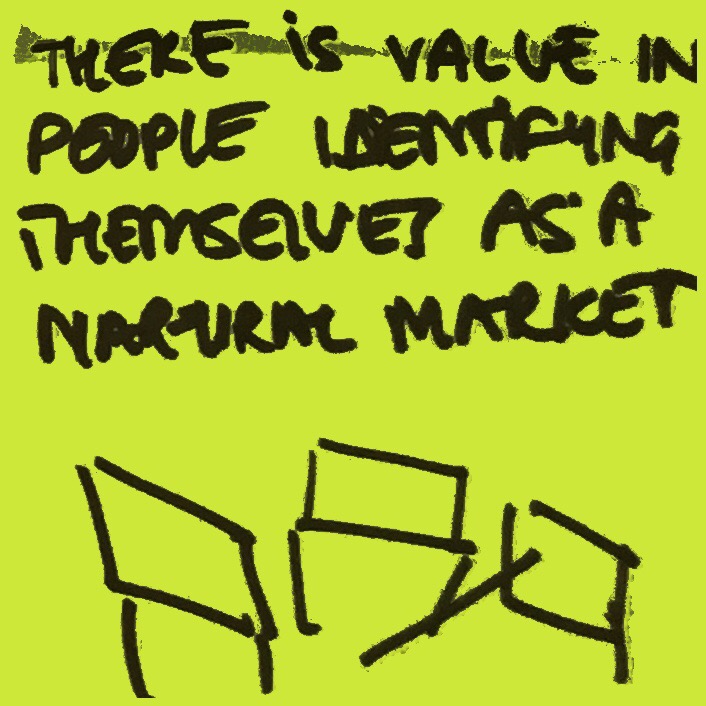 THERE IS VALUE IN
PEOPLE IDENTIFYING
THEMSELVES AS A
NATURAL MARKET